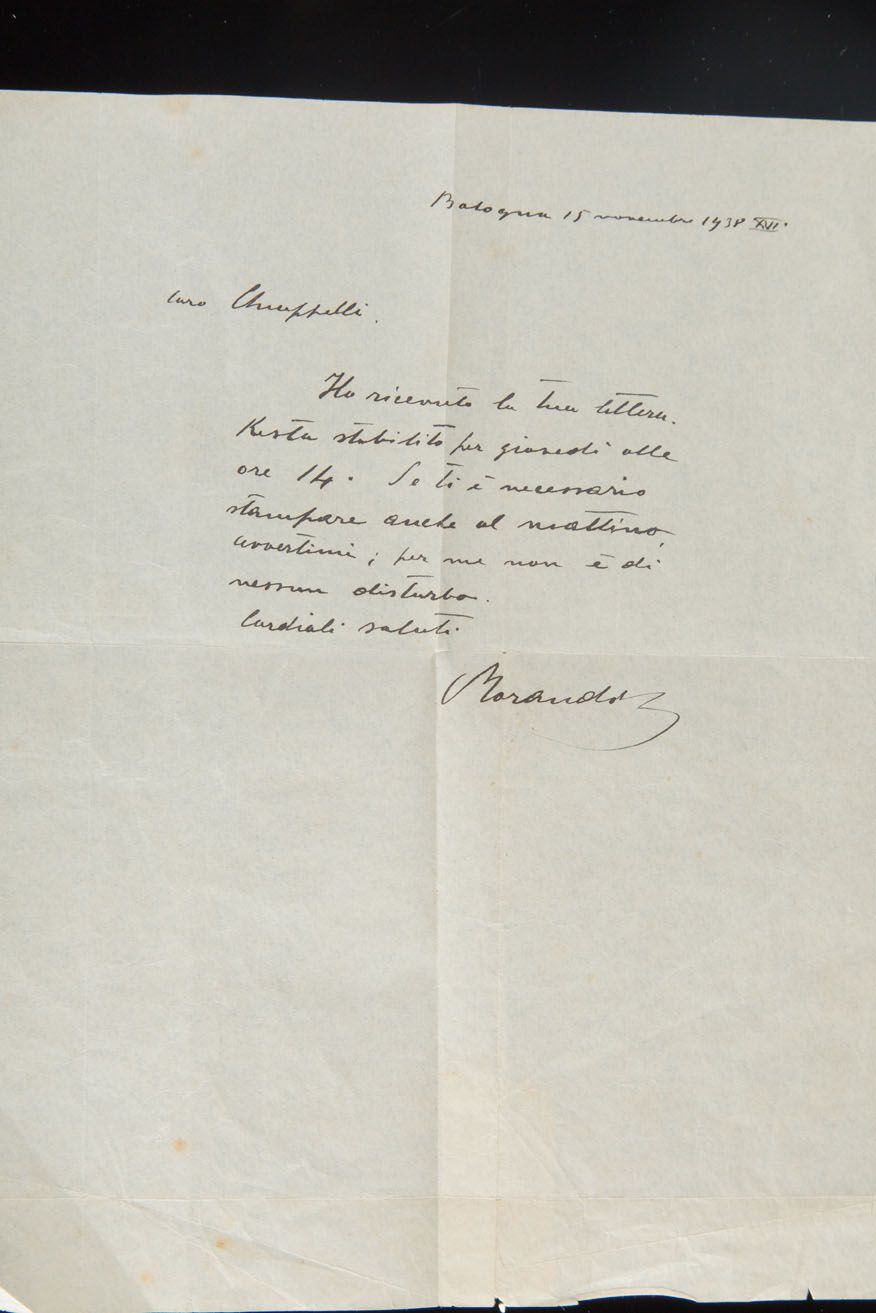 Bologna 15 novembre 1938 XVI.
Caro Chiappelli.
Ho ricevuto la tua lettera.
Resta stabilito per giovedì alle
ore 14. Se ti è necessario
stampare anche al mattino,
avvertimi; per me non è di
nessun disturbo.
Cordiali saluti
Morandi